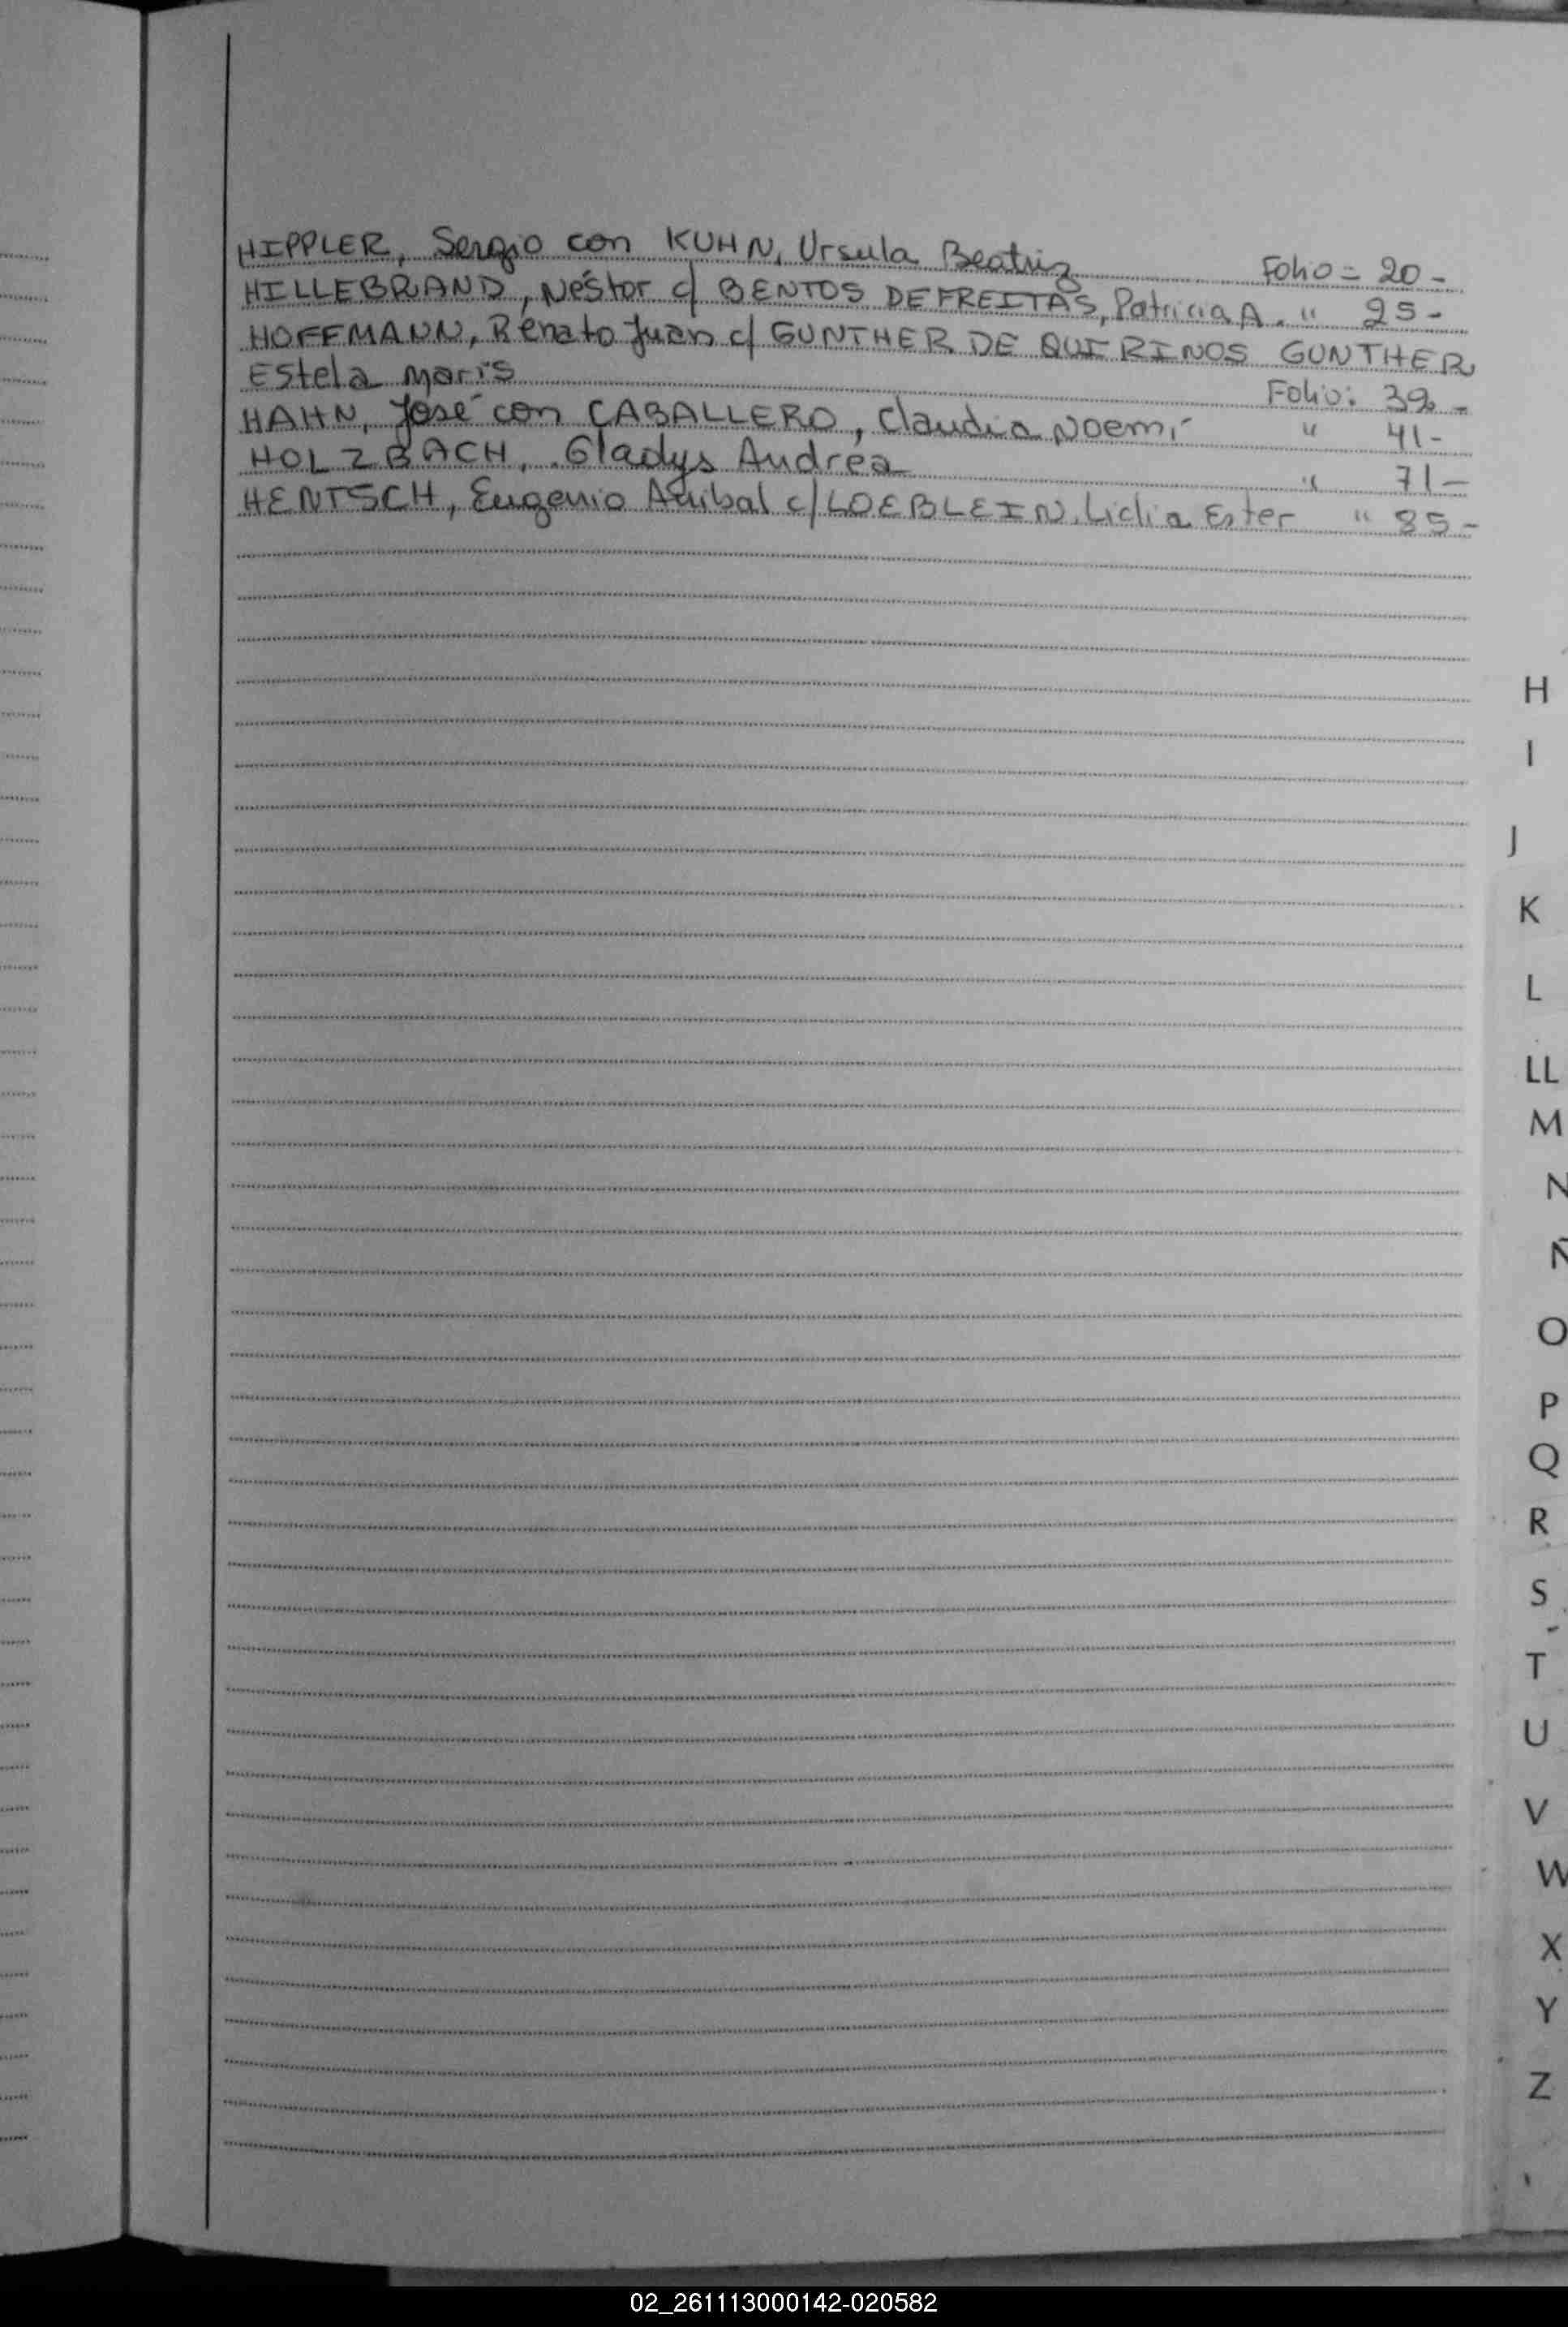 HIPPLER, Sergio con KUHN, Ursula Beatriz Folio = 20 -
HILLEBRAND, Néstor c/ BENTOS DEFREITAS, Patricia A. " 25 -
HOFFMANN, Renato Juan c/ GUNTHER DE QUIRINOS GUNTHER
Estela Maris Folio: 39 -
HAHN, José con CABALLERO, Claudia Noemí " 41 -
HOLZBACH, Gladys Andrea " 71 -
HENTSCH, Eugenio Anibal c/ LOEBLEIN, Lidia Ester " 85 -
H
I
J
K
L
LL
M
N
Ñ
O
P
Q
R
S
T
U
V
W
X
Y
Z
02_261113000142-020582